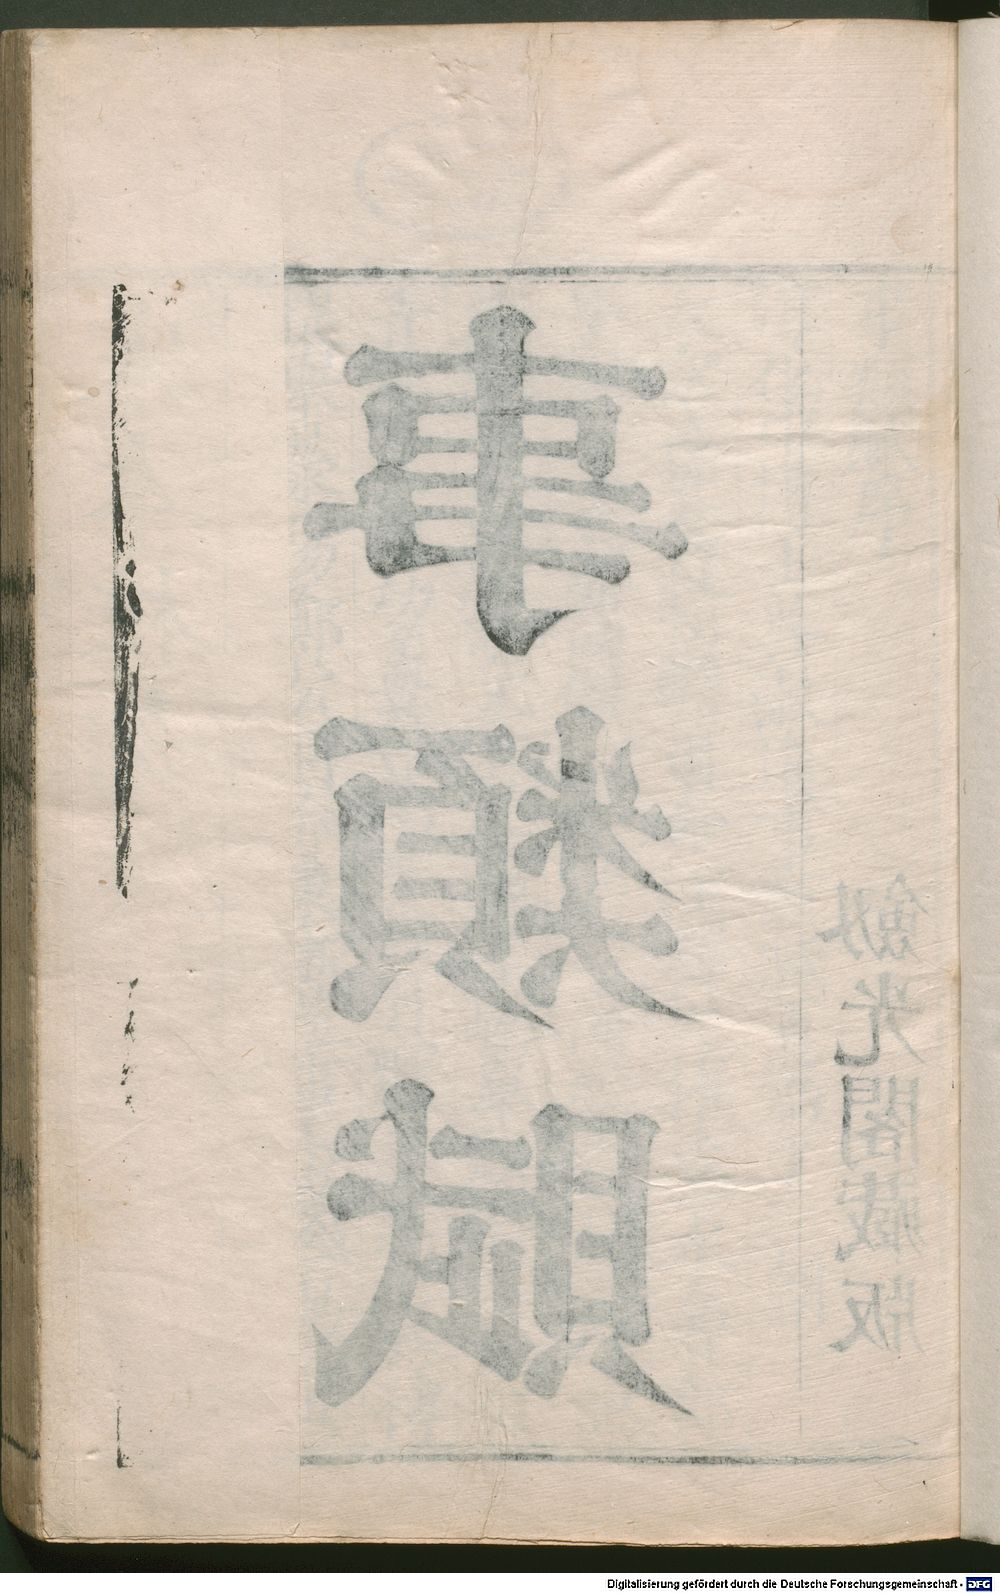 事類賦
劒光閣藏版
Digitalisierung gefördert durch die Deutsche Forschungsgemeinschaft - DFG